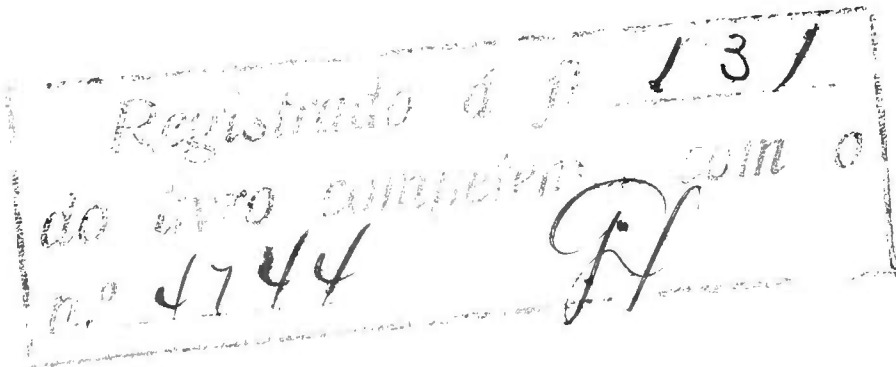 Registrado á fl 131
do livro competente com o
n.º 4744